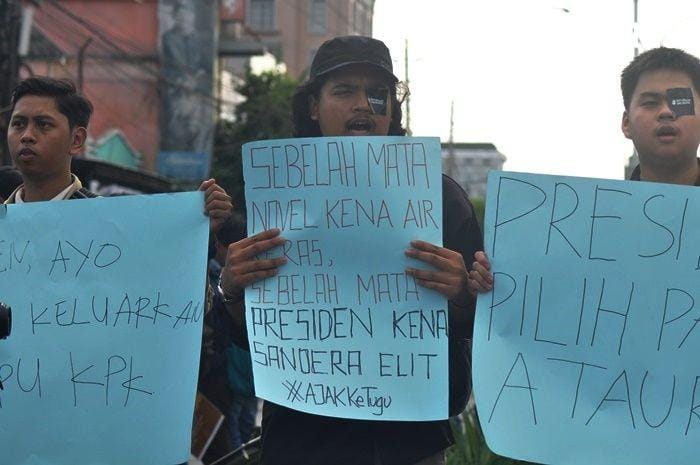 AYO
KELUARKAN
PU KPK
SEBELAH MATA
NOVEL KENA AIR
KERAS,
SEBELAH MATA
PRESIDEN KENA
SANDERA ELIT
#AJAKKeTugu
PRESI
PILIH PA
ATAU